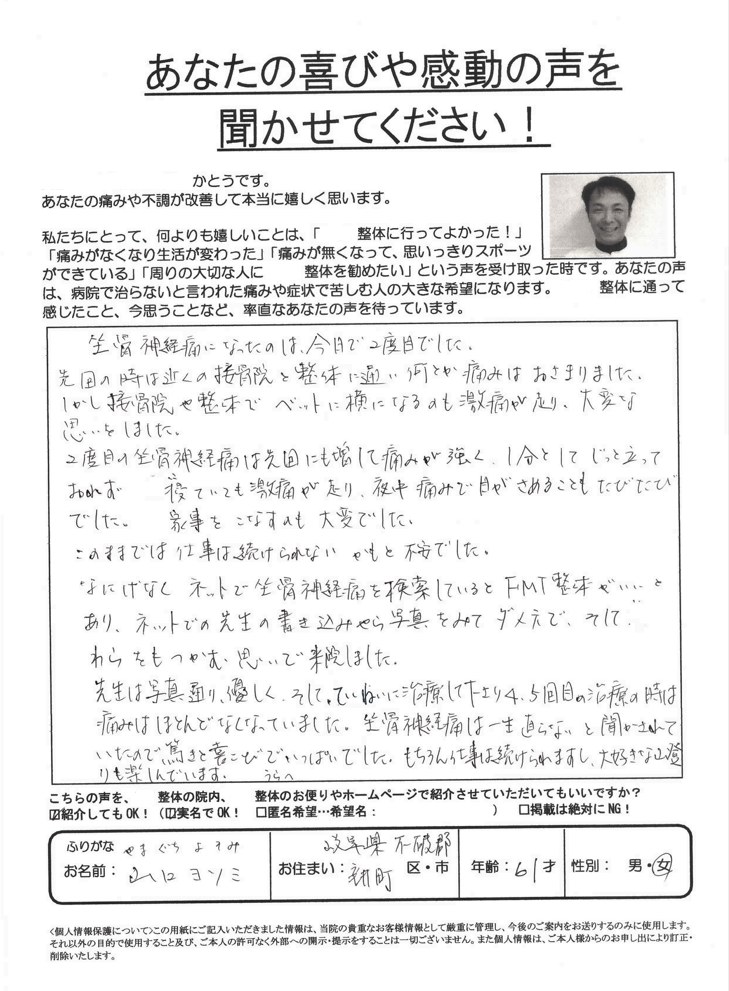 あなたの喜びや感動の声を
聞かせてください！
かとうです。
あなたの痛みや不調が改善して本当に嬉しく思います。
私たちにとって、何よりも嬉しいことは、「　　整体に行ってよかった！」
「痛みがなくなり生活が変わった」「痛みが無くなって、思いっきりスポーツ
ができている」「周りの大切な人に　　　整体を勧めたい」という声を受け取った時です。あなたの声
は、病院で治らないと言われた痛みや症状で苦しむ人の大きな希望になります。　　　整体に通って
感じたこと、今思うことなど、率直なあなたの声を待っています。
坐骨神経痛になったのは、今回で2度目でした。
先回の時は近くの接骨院と整体に通い何とか痛みはおさまりました。
しかし接骨院や整体でベットに横になるのも激痛が走り、大変な
思いをしました。
2度目の坐骨神経痛は先回にも増して痛みが強く、1分としてじっと立って
おれず　寝ていても激痛が走り、夜中痛みで目がさめることもたびたび
でした。　家事をこなすのも大変でした。
このままでは仕事は続けられないかもと不安でした。
なにげなくネットで坐骨神経痛を検索しているとFMT整体がいいと
あり、ネットでの先生の書き込みやら写真をみてダメ元で、そして
わらをもつかむ思いで来院しました。
先生は写真通り、優しく、そして、ていねいに治療して下さり4、5回目の治療の時は
痛みはほとんどなくなっていました。坐骨神経痛は一生直らないと聞かされて
いたので驚きと喜こびでいっぱいでした。もちろん仕事は続けられますし、大好きな山登
りも楽しんでいます。　うらへ
こちらの声を、　　整体の院内、　　整体のお便りやホームページで紹介させていただいてもいいですか？
☑紹介してもOK！（☑実名でOK！　□匿名希望…希望名：　　　　　　　）　□掲載は絶対にNG！
ふりがな　やまぐち よそみ
お名前：山口 ヨソミ
お住まい：岐阜県 不破郡
垂井町　区・市
年齢：61才
性別：　男・女
<個人情報保護について>この用紙にご記入いただきました情報は、当院の貴重なお客様情報として厳重に管理し、今後のご案内をお送りするのみに使用します。
それ以外の目的で使用すること及び、ご本人の許可なく外部への開示・提示をすることは一切ございません。また個人情報は、ご本人様からのお申し出により訂正・
削除いたします。